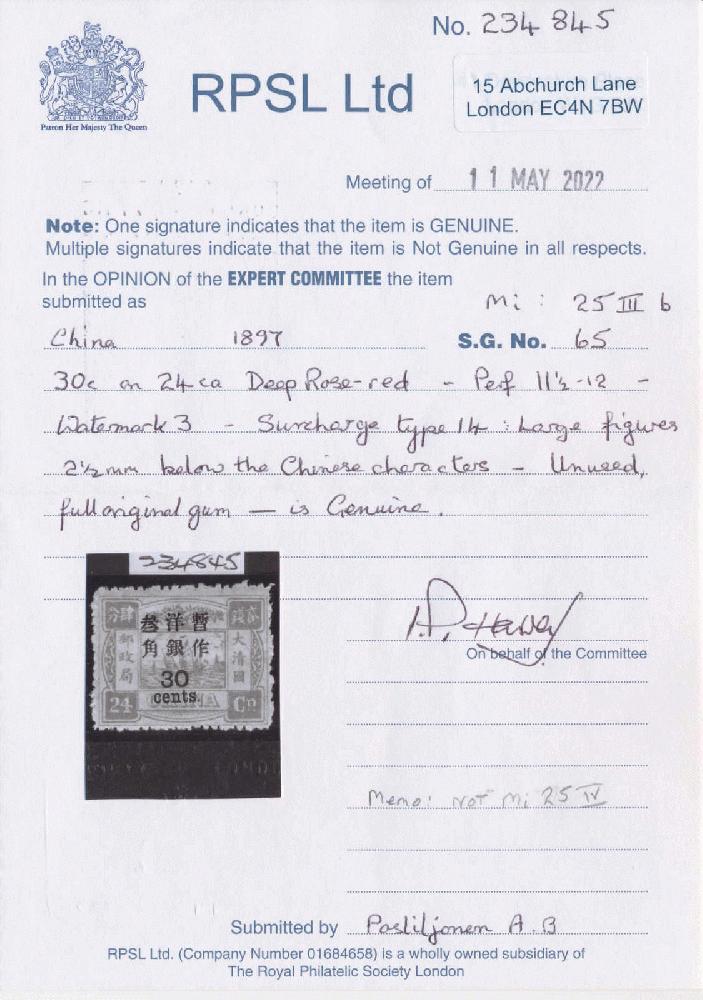 No. 234 845
Patron Her Majesty The Queen
RPSL Ltd
15 Abchurch Lane
London EC4N 7BW
Meeting of 11 MAY 2022
Note: One signature indicates that the item is GENUINE.
Multiple signatures indicate that the item is Not Genuine in all respects.
In the OPINION of the EXPERT COMMITTEE the item
submitted as
Mi : 25 III b
China 1897 S.G. No. 65
30c on 24 ca Deep Rose-red - Perf 11½-12 -
Watermark 3 - Surcharge type 14 : Large figures
2½mm below the Chinese characters - Unused,
full original gum — is Genuine.
234845
分肆 暫作 洋銀 叁角 貳錢
郵政局 大清國
30
cents.
24 CD
On behalf of the Committee
Memo: NOT Mi 25 IV
Submitted by Posliljonen A.B
RPSL Ltd. (Company Number 01684658) is a wholly owned subsidiary of
The Royal Philatelic Society London